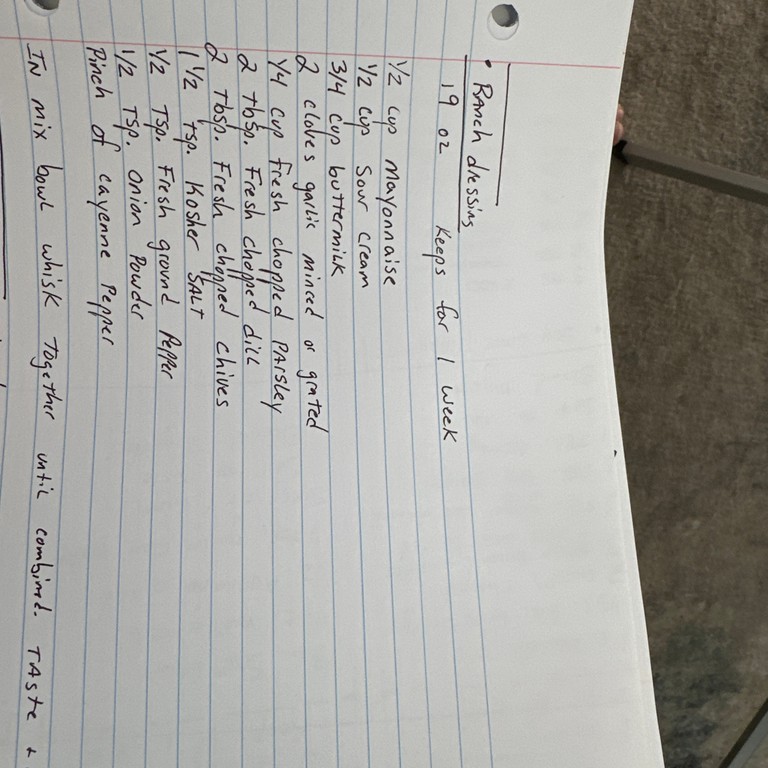 • Ranch dressing
19 oz Keeps for 1 week
1/2 cup mayonnaise
1/2 cup Sour cream
3/4 cup buttermilk
2 cloves garlic minced or grated
1/4 cup fresh chopped PArsley
2 tbsp. Fresh chopped dill
2 Tbsp. Fresh chopped chives
1 1/2 Tsp. Kosher SALT
1/2 Tsp. Fresh ground Pepper
1/2 Tsp. onion Powder
Pinch of cayenne Pepper
IN mix bowl whisk Together until combined. TAste +